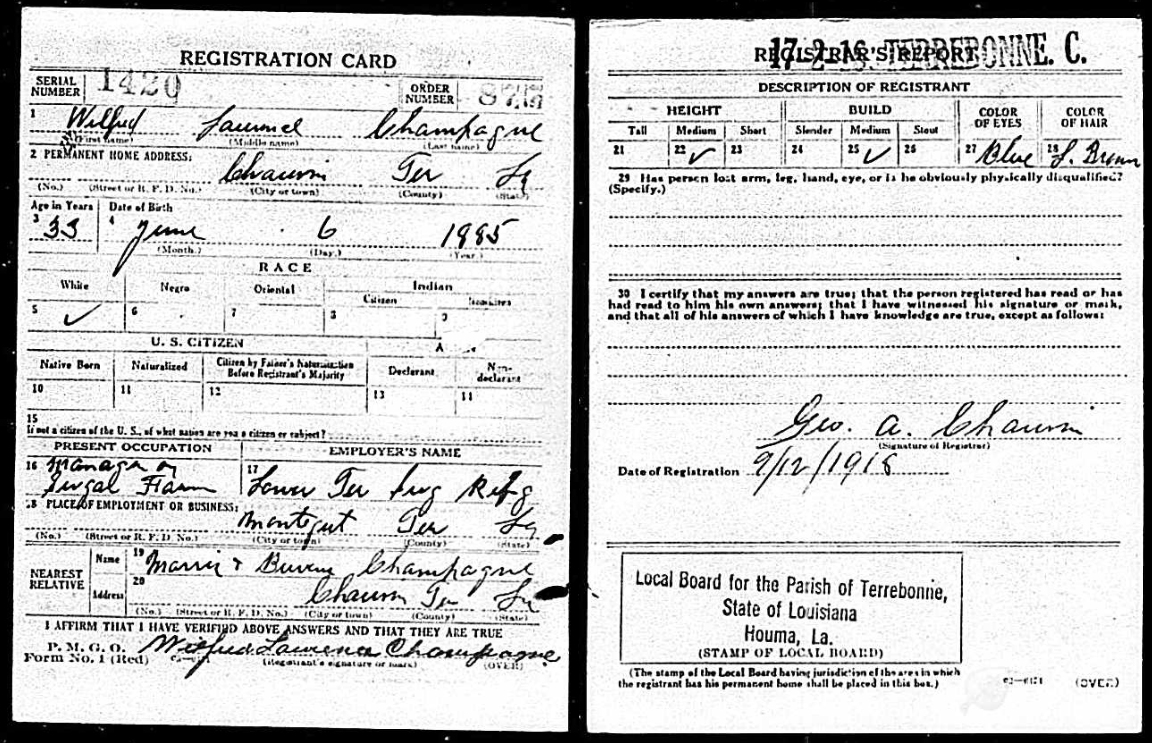 REGISTRATION CARD
SERIAL NUMBER 1420 ORDER NUMBER
1 Wilfred Champagne
(First name) (Middle name) (Last name)
2 PERMANENT HOME ADDRESS:
Chauvin Ter La
(No.) (Street or R. F. D. No.) (City or town) (County) (State)
Age in Years Date of Birth
3 33 4 June 6 1885
(Month.) (Day.) (Year.)
RACE
White Negro Oriental Indian
Citizen
5 ✓ 6 7 8 9
U. S. CITIZEN
Native Born Naturalized Citizen by Father's Naturalization Before Registrant's Majority Declarant Non-declarant
10 11 12 13 14
15
If not a citizen of the U. S., of what nation are you a citizen or subject?
PRESENT OCCUPATION EMPLOYER'S NAME
16 Manager on 17
Farm Lower Ter Refg
18 PLACE OF EMPLOYMENT OR BUSINESS:
Montegut Ter La
(No.) (Street or R. F. D. No.) (City or town) (County) (State)
NEAREST RELATIVE Name 19 Champagne
Address 20 Chauvin Ter La
(No.) (Street or R. F. D. No.) (City or town) (County) (State)
I AFFIRM THAT I HAVE VERIFIED ABOVE ANSWERS AND THAT THEY ARE TRUE
P. M. G. O.
Form No. 1 (Red) Wilfred Lawrence Champagne
(Registrant's signature or mark) (OVER)
REGISTRAR'S REPORT
17-2-16 TERREBONNE. C.
DESCRIPTION OF REGISTRANT
HEIGHT BUILD COLOR OF EYES COLOR OF HAIR
Tall Medium Short Slender Medium Stout
21 22 ✓ 23 24 25 ✓ 26 27 Blue 28 L. Brown
29 Has person lost arm, leg, hand, eye, or is he obviously physically disqualified?
(Specify.)
30 I certify that my answers are true; that the person registered has read or has
had read to him his own answers; that I have witnessed his signature or mark,
and that all of his answers of which I have knowledge are true, except as follows:
Geo. A. Chauvin
(Signature of Registrar)
Date of Registration 9/12/1918
Local Board for the Parish of Terrebonne,
State of Louisiana
Houma, La.
(STAMP OF LOCAL BOARD)
(The stamp of the Local Board having jurisdiction of the area in which
the registrant has his permanent home shall be placed in this box.)
(OVER)